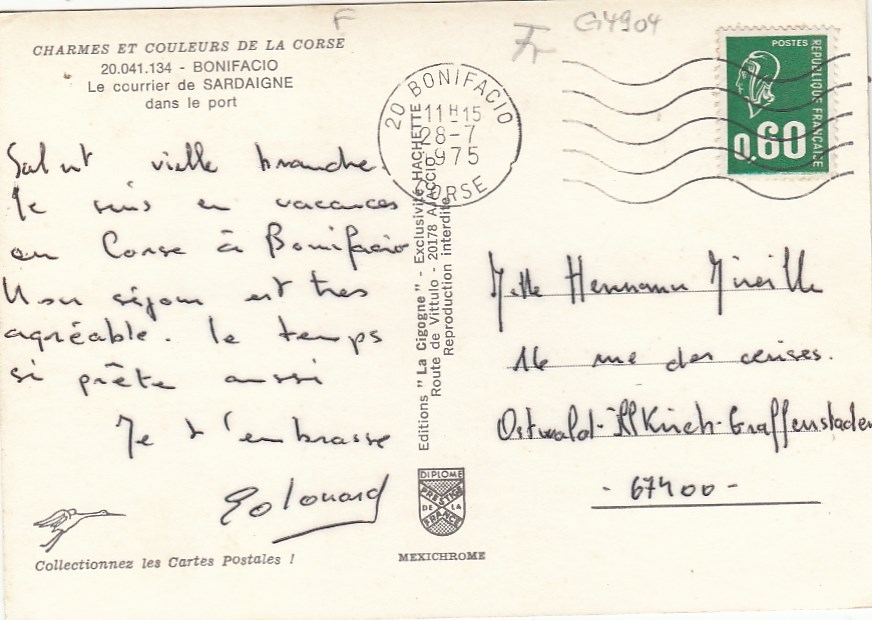 F
Fr
G4904
CHARMES ET COULEURS DE LA CORSE
20.041.134 - BONIFACIO
Le courrier de SARDAIGNE
dans le port
20 BONIFACIO
11H15
28-7
1975
CORSE
POSTES
REPUBLIQUE FRANÇAISE
0,60
Salut vielle branche.
Je suis en vacances
en Corse à Bonifacio
Mon séjour est très
agréable. le temps
si prête aussi
Je t'embrasse
Edouard
Editions "La Cigogne" - Exclusivité HACHETTE
Route de Vittulo - 20178 AJACCIO
Reproduction interdite
Melle Hermann Mireille
16 rue des cerises.
Ostwald-IllKirch-Graffenstaden
- 67400 -
DIPLOME
PRESTIGE
DE LA
FRANCE
MEXICHROME
Collectionnez les Cartes Postales !